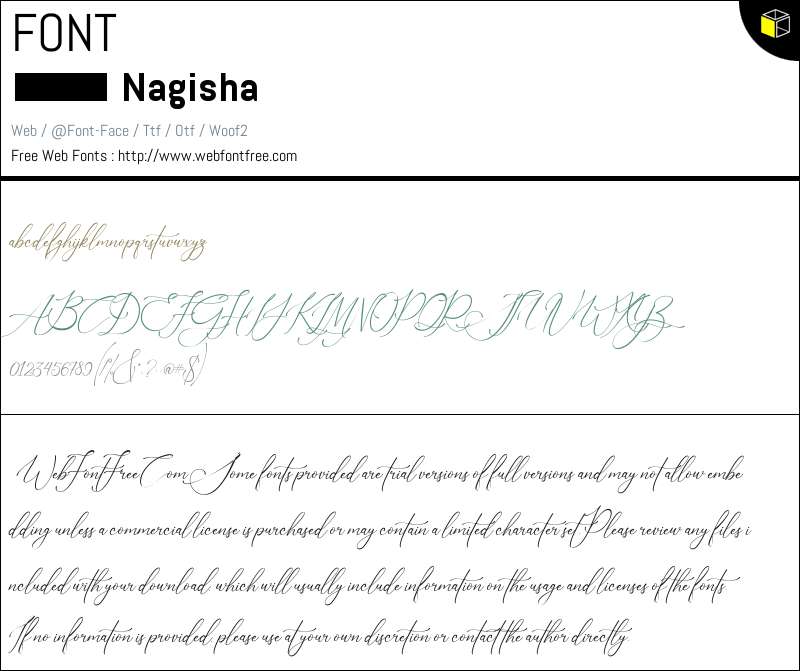 FONT
Nagisha
Web / @Font-Face / Ttf / Otf / Woof2
Free Web Fonts : http://www.webfontfree.com
abcdefghijklmnopqrstuvwxyz
ABCDEFGHIJKLMNOPQRSTUVWXYZ
0123456789
WebFontFree.Com Some fonts provided are trial versions of full versions and may not allow embe
dding unless a commercial license is purchased or may contain a limited character set. Please review any files i
ncluded with your download, which will usually include information on the usage and licenses of the fonts.
If no information is provided, please use at your own discretion or contact the author directly.